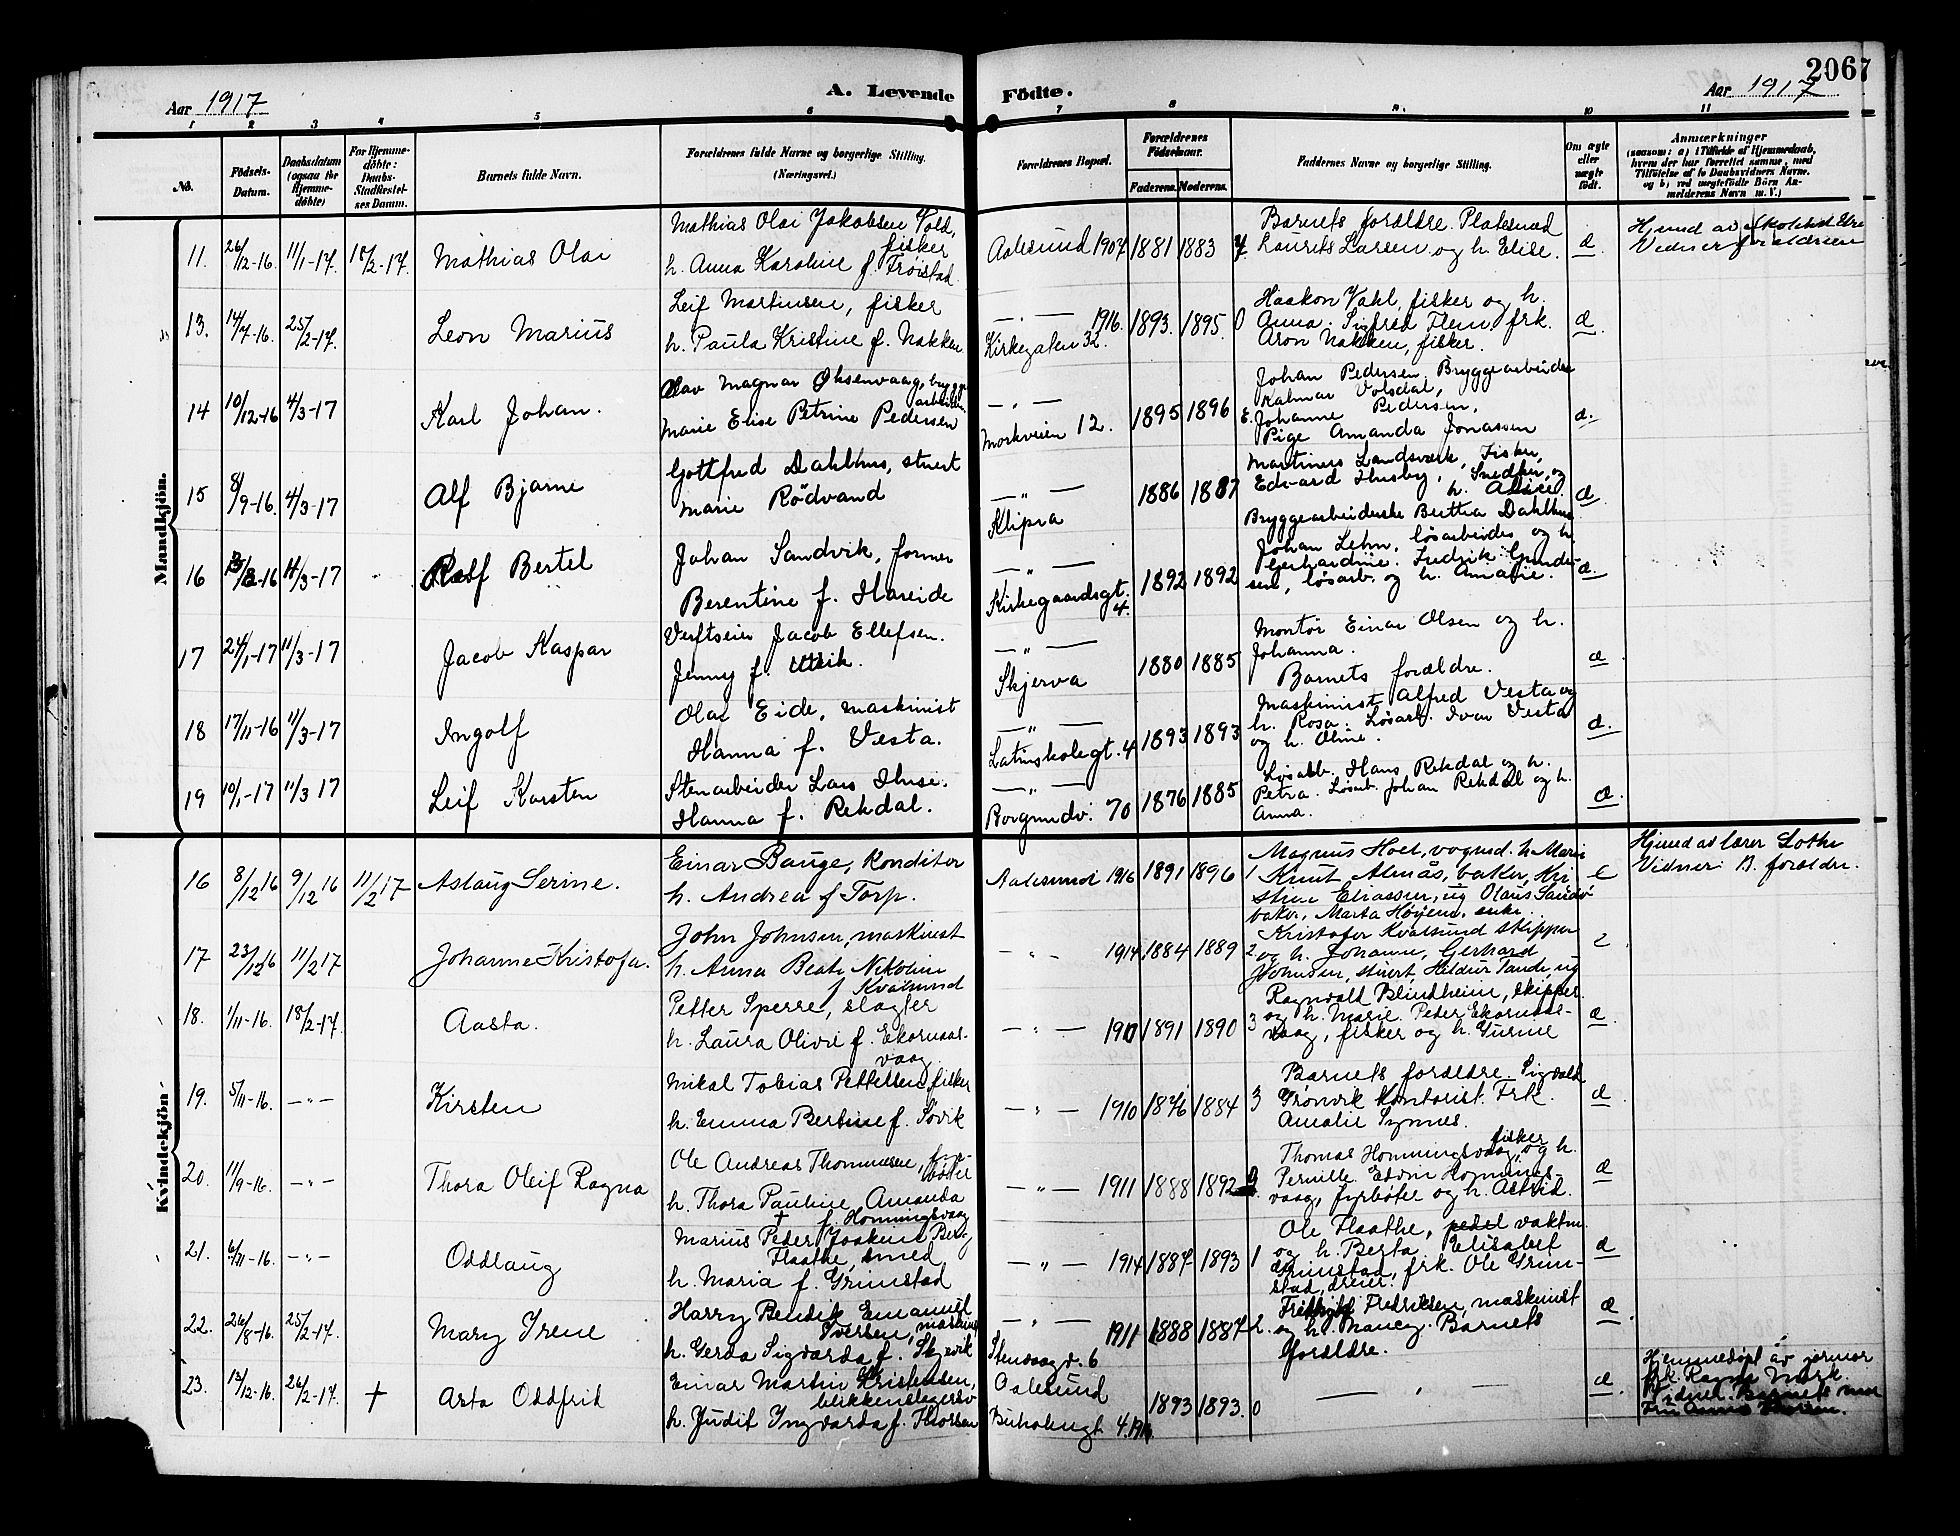 2067
Aar 1917
A. Levende Födte.
Aar 1917
1 2 3 4 5 6 7 8 9 10 11
No.
Födsels-Datum.
Daabsdatum (ogsaa for Hjemme-döbte)
For Hjemme-döbte: Daabs-Stadfæstel-ses Datum.
Barnets fulde Navn.
Forældrenes fulde Navne og borgerlige Stilling.
(Næringsvei.)
Forældrenes Bopæl.
Forældrenes Födselsaar.
Faderens. Moderens.
Faddernes Navne og borgerlige Stilling.
Om ægte eller uægte födt.
Anmærkninger
(saasom: a) i Tilfælde af Hjemmedaab,
hvem der har forrettet samme, med
Tilföielse af to Daabsvidners Navne.
og b) ved uægtefödte Börn An-
melderens Navn m. V.)
Mandkjön.
11. 26/12-16. 11/1-17. 18/2-17. Mathias Olai
Mathias Olai Jakobsen Vold, fisker
h. Anna Karoline f. Frøistad.
Aalesund 1907 1881 1883 4
Barnets forældre.
Laurits Larsen og h. Elise.
æ
13. 14/7-16. 25/2-17. Leon Marius
Leif Martinsen, fisker
h. Paula Kristine f. Nakken
— " — 1916.
Kirkegaten 32.
1893. 1895. 0
Haakon Vahl, fisker og h.
Anna. Sigfred Flem frk.
Aron Nakken, fisker.
æ
14 10/12-16 4/3-17 Karl Johan.
Olav Magnar Oksenvaag, bryggearbeider.
Marie Elise Petrine Pedersen
— " —
Morkveien 12.
1895 1896
Johan Pedersen Bryggearbeider
Kalmar Volsdal,
E. Johanne Pedersen,
Pige Amanda Jonassen
æ.
15 8/9-16. 4/3-17 Alf Bjarne
Gottfred Dahlhus, stuert
Marie Rödvand
— " —
Klipra
1886 1887
Martinus Landsværk, Fisker,
Edvard Husby, Snedker, og
h. Alice.
Bryggearbeiderske Bertha Dahlhus
æ
16 11/3-17 Rolf Bertel
Johan Sandvik, former
Berentine f. Hareide
— " —
Kirkegaardsgt. 4.
1892 1892
Johan Lehn, løsarbeider og h.
Gerhardine. Fredrik Gunder-
sen, løsarb. og h. Amalie.
æ.
17 24/1-17 11/3-17 Jacob Kaspar
Verftseier Jacob Ellefsen.
Jenny f.
— " —
Skjerva
1880 1885
Montör Einar Olsen og h.
Johanna.
Barnets forældre.
æ
18 17/11-16 11/3-17 Ingolf
Olaf Eide, maskinist
Hanna f. Vesta.
— " —
Latinskolegt. 4
1893 1893
Maskinist Alfred Vesta og
h. Rosa. Løsarb. Ivar Vesta
og h. Oline.
æ.
19 10/1-17 11/3 17 Leif Karsten
Stenarbeider Lars Huse.
Hanna f. Rekdal.
— " —
Borgundv. 70
1876 1885
Løsarb. Hans Rekdal og h.
Petra. Løsarb. Johan Rekdal og h.
Anna.
æ.
Kvindekjön
16 8/12 16 9/12 16 11/2 17 Aslaug Serine.
Einar Bauge, Konditor
h. Andrea f Torp.
Aalesund 1916 1891 1896 1
Magnus Hoel, vognd. h. Marie
Knut Almås, baker, Kri
stine Eliassen, ug Olaus
baker, Marta enke.
Hjemd av lærer
Vidner: B. forældre.
17 23/12 16 11/2 17 Johanne Kristofa.
John Johnsen, maskinist
h. Anna Beate Nikoline
f Kvalsund
— " — 1914 1884 1889 2
Kristofer Kvalsund skipper
og h. Johanne, Gerhard
Johnsen, stuert Hildur Tande, ug
18. 1/11-16. 18/2-17. Aasta.
Petter Sperre, slagter
h. Laura Olivie f. Ekornaas-
vaag.
— " — 1891 1890 3
Ragnvald Blindheim, skipper.
og h. Marie Peder Ekornaas-
vaag, fisker og h. Gurine
æ
19. 5/11-16. — " — Kirsten
Mikal Tobias Pettersen fisker
h. Emma Bertine f. Søvik
— " — 1910 1876 1884 3
Barnets forældre. Sigvald
Grønvik Kontorist. Frk.
Amalie Synnes.
æ
20. 11/9-16. — " — Thora Oleif Ragna
Ole Andreas Thommesen, fyrbøter
h. Thora Pauline Amanda
† f. Honningsvaag
— " — 1911 1888 1892
Thomas Honningsvaag, fisker og h.
Pernille Edvin Honnings-
vaag, fyrbøter og h. Astrid.
æ
21. 6/11-16. — " — Oddlaug
Marius Peder Joakim Berg
Flaathe, smed
h. Maria f. Grimstad
— " — 1914 1887 1893 1
Ole Flaathe, pedel vaktm.
og h. Berta Elisabet
Grimstad, frk. Ole Grim-
stad, dreier.
æ
22. 26/8-16. 25/2-17. Mary Irene
Harry Bendik Emanuel
Iversen, maskinist
h. Gerda Sigvarda f. Skjevik
— " — 1911
Stensvagv. 6
1888 1887 2.
Fredriksen, maskinist
og h. Nancy. Barnets
forældre.
æ
23. 13/12-16. 26/2-17. † Asta Oddfrid
Einar Martin Kristensen,
blikkenslagersv
h. Judit Ingvarda f. Thorsen
Aalesund
Buholmgt 4. 1916.
1893 1893. 0
— " —
æ
Hjemmedøpt av jormor
frk. Ragna Mørk.
Vidner. Barnets mor
Fru Anna Thorsen.